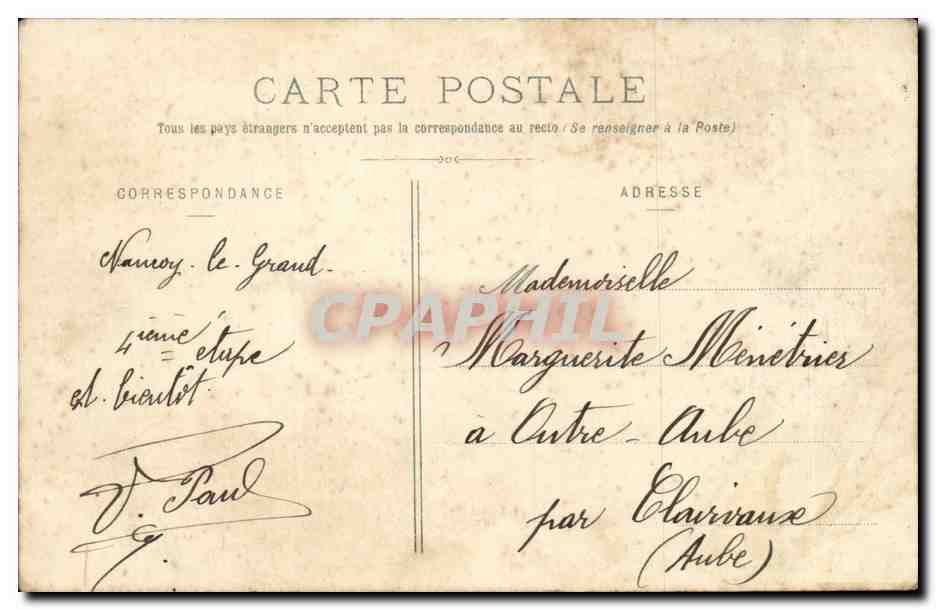 CARTE POSTALE
Tous les pays étrangers n'acceptent pas la correspondance au recto (Se renseigner à la Poste)
CORRESPONDANCE
ADRESSE
le-Grand
4ième étape
et bientôt
V. Paul
Mademoiselle
Marguerite Ménétrier
à Outre-Aube
par Clairvaux
(Aube)
CPAPHIL